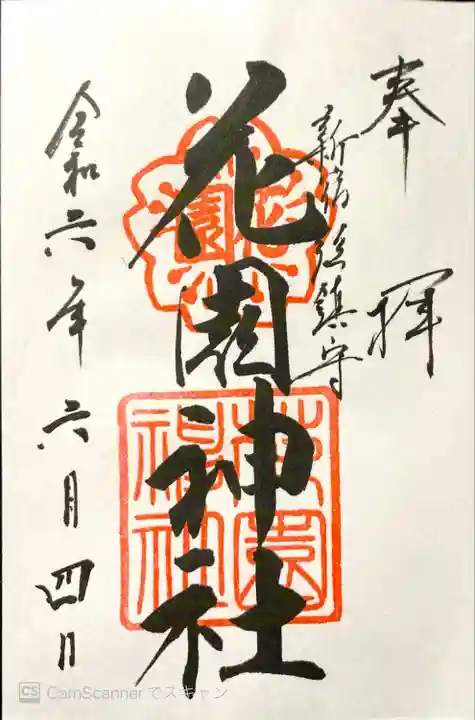 奉拝
新宿総鎮守
花園神社
令和六年六月四日
花園
花園神社
CS CamScannerでスキャン